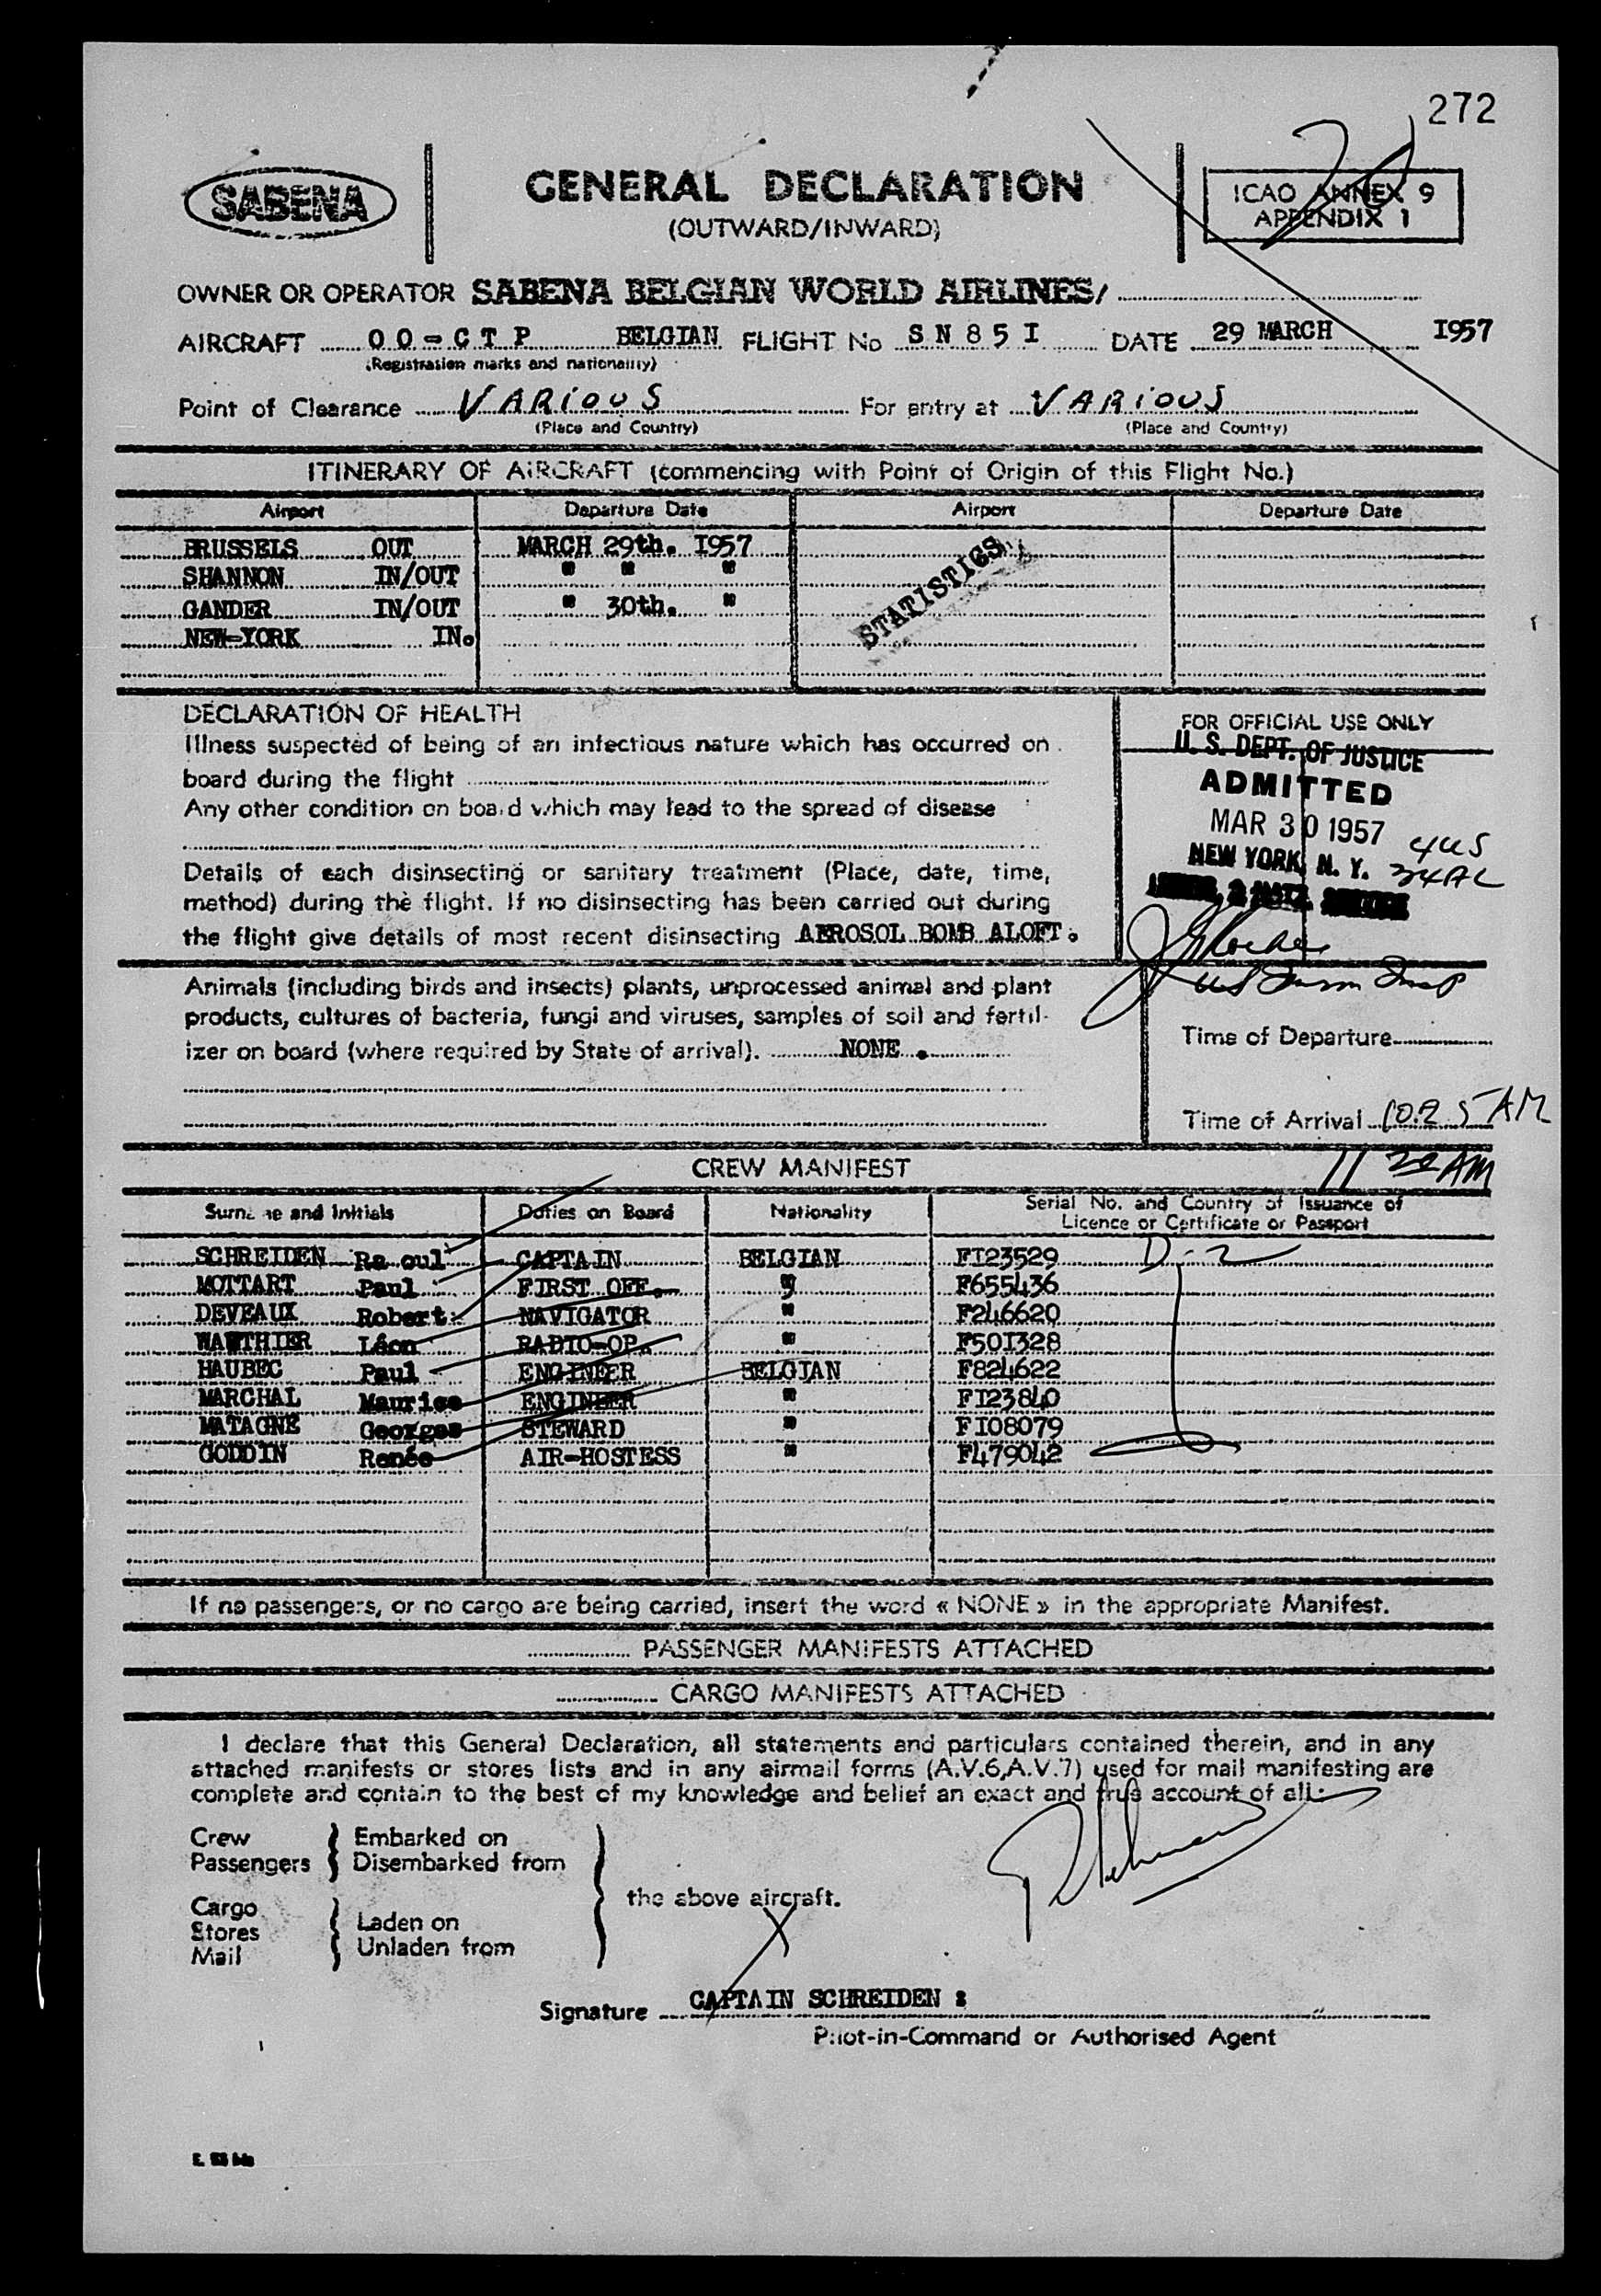 272
SABENA
GENERAL DECLARATION
(OUTWARD/INWARD)
ICAO ANNEX 9
APPENDIX 1
OWNER OR OPERATOR SABENA BELGIAN WORLD AIRLINES/
AIRCRAFT OO-CTP BELGIAN FLIGHT No SN 85I DATE 29 MARCH I957
(Registration marks and nationality)
Point of Clearance VARIOUS For entry at VARIOUS
(Place and Country) (Place and Country)
ITINERARY OF AIRCRAFT (commencing with Point of Origin of this Flight No.)
Airport Departure Date Airport Departure Date
BRUSSELS OUT MARCH 29th. I957
SHANNON IN/OUT " " "
GANDER IN/OUT " 30th. "
NEW-YORK IN.
STATISTICS
DECLARATION OF HEALTH
Illness suspected of being of an infectious nature which has occurred on
board during the flight
Any other condition on board which may lead to the spread of disease
Details of each disinsecting or sanitary treatment (Place, date, time,
method) during the flight. If no disinsecting has been carried out during
the flight give details of most recent disinsecting AEROSOL BOMB ALOFT.
FOR OFFICIAL USE ONLY
U. S. DEPT. OF JUSTICE
ADMITTED
MAR 30 1957
NEW YORK, N. Y.
4US
24AL
Animals (including birds and insects) plants, unprocessed animal and plant
products, cultures of bacteria, fungi and viruses, samples of soil and fertil-
izer on board (where required by State of arrival). NONE.
Time of Departure
Time of Arrival 10.25 AM
11 20 AM
CREW MANIFEST
Surname and Initials Duties on Board Nationality Serial No. and Country of Issuance of
Licence or Certificate or Passport
SCHREIDEN Raoul CAPTAIN BELGIAN FI23529 D-2
MOTTART Paul FIRST OFF. " F655436
DEVEAUX Robert NAVIGATOR " F246620
WAUTHIER Léon RADIO-OP. " F50I328
HAUBEC Paul ENGINEER BELGIAN F824622
MARCHAL Maurice ENGINEER " FI23840
MATAGNE Georges STEWARD " FI08079
GODDIN Renée AIR-HOSTESS " F479042
If no passengers, or no cargo are being carried, insert the word « NONE » in the appropriate Manifest.
PASSENGER MANIFESTS ATTACHED
CARGO MANIFESTS ATTACHED
I declare that this General Declaration, all statements and particulars contained therein, and in any
attached manifests or stores lists and in any airmail forms (A.V.6,A.V.7) used for mail manifesting are
complete and contain to the best of my knowledge and belief an exact and true account of all:
Crew
Passengers
Embarked on
Disembarked from
Cargo
Stores
Mail
Laden on
Unladen from
the above aircraft.
Signature CAPTAIN SCHREIDEN :
Pilot-in-Command or Authorised Agent